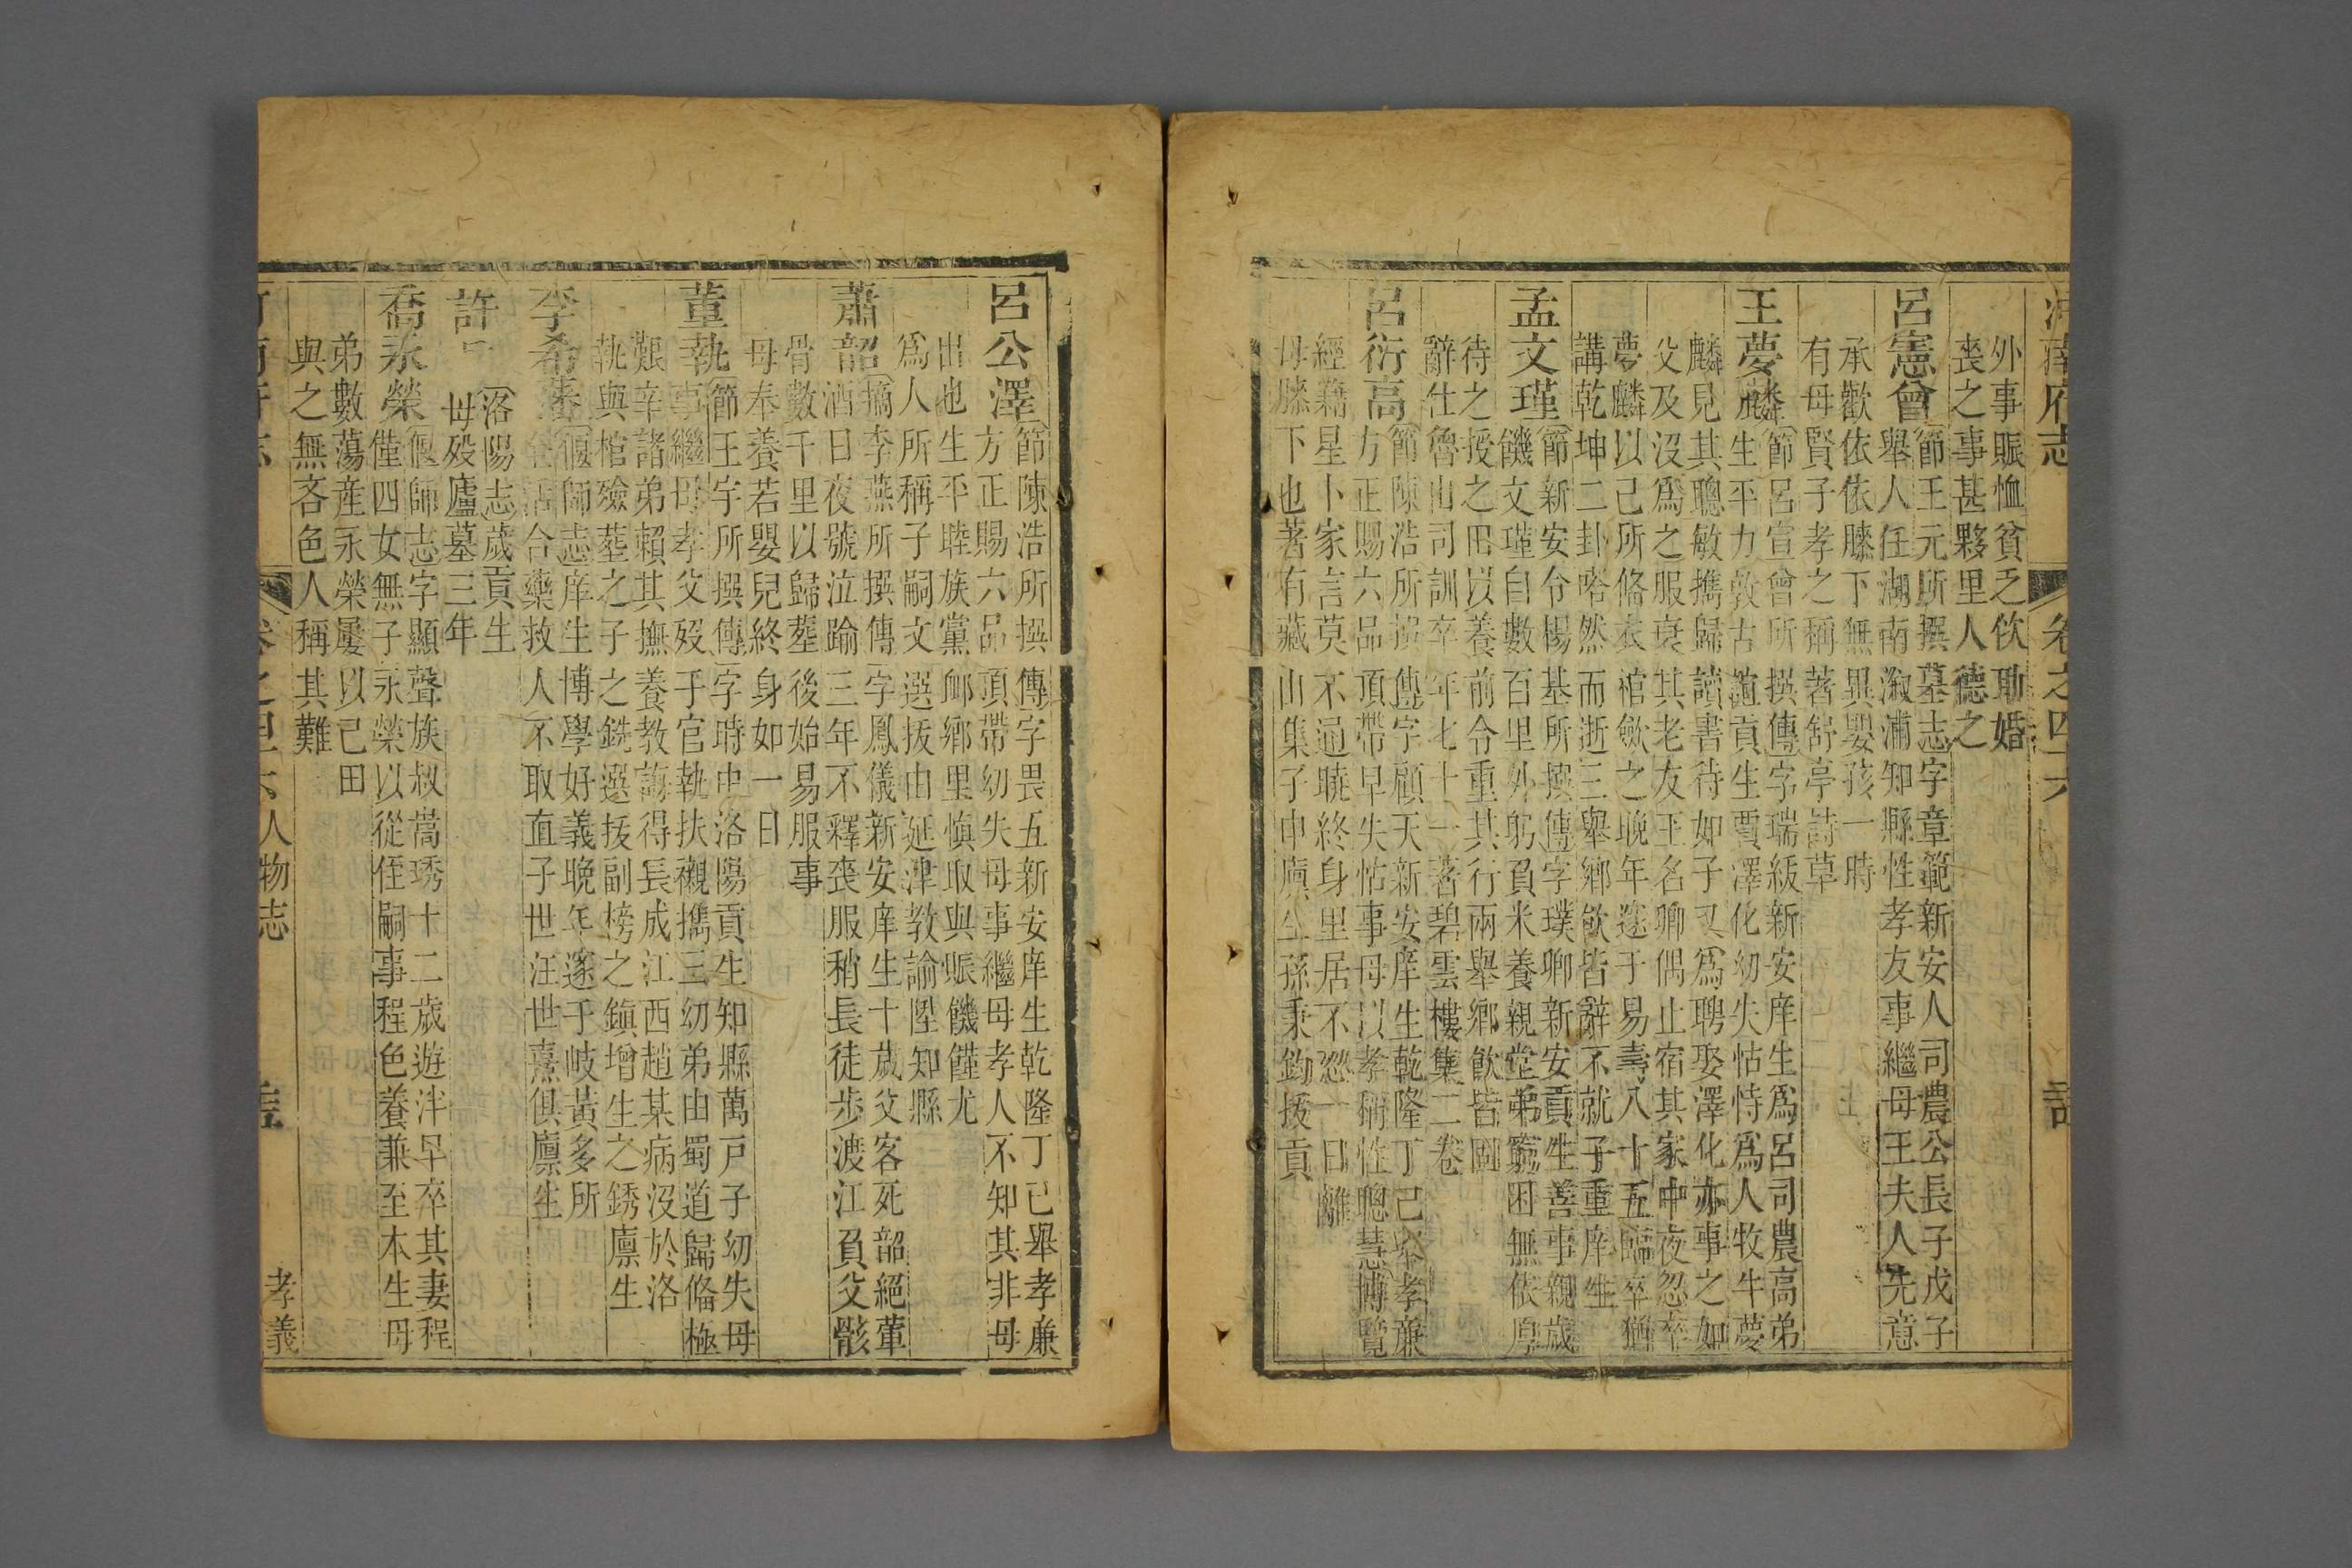 河南府志
卷之四十六
外事賑恤貧乏佽助婚
喪之事甚夥里人德之
呂憲曾
節王元所撰墓志字章範新安人司農公長子戊子
舉人任湖南漵浦知縣性孝友事繼母王夫人先意
承歡依依膝下無異嬰孩一時
有母賢子孝之稱著舒亭詩草
王夢麟
節呂宣曾所撰傳字瑞紱新安庠生爲呂司農高弟
生平力敦古誼貢生賈澤化幼失怙恃爲人牧牛夢
麟見其聰敏攜歸讀書待如子又爲聘娶澤化亦事之如
父及沒爲之服衰其老友王名卿偶止宿其家中夜忽卒
夢麟以己所俻衣棺歛之晚年邃于易壽八十五臨卒猶
講乾坤二卦嗒然而逝三舉鄉飲皆辭不就子重庠生
孟文瑾
節新安令楊基所撰傳字璞卿新安貢生善事親歲
饑文瑾自數百里外躬負米養親堂弟窮困無依厚
待之授之田以養前令重其行兩舉鄉飲皆固
辭仕魯山司訓卒年七十一著碧雲樓集二卷
呂衍高
節陳浩所撰傳字顧天新安庠生乾隆丁巳舉孝廉
方正賜六品頂帶早失怙事母以孝稱性聰慧博覽
經籍星卜家言莫不通曉終身里居不忍一日離
母膝下也著有藏山集子申廩生孫秉鈞拔貢
呂公澤
節陳浩所撰傳字畏五新安庠生乾隆丁巳舉孝廉
方正賜六品頂帶幼失母事繼母孝人不知其非母
出也生平睦族黨鄉里慎取與賑饑饉尤
爲人所稱子嗣文選拔由延津教諭陞知縣
蕭韶
摘李燕所撰傳字鳳儀新安庠生十歲父客死韶絕葷
酒日夜號泣踰三年不釋喪服稍長徒步渡江負父骸
骨數千里以歸塟後始易服事
母奉養若嬰兒終身如一日
董執
節王宇所撰傳字時中洛陽貢生知縣萬戸子幼失母
事繼母孝父歿于官執扶襯攜三幼弟由蜀道歸俻極
艱辛諸弟賴其撫養教誨得長成江西趙某病沒於洛
執與棺殮塟之子之銑選拔副榜之鎮增生之銹廩生
李希
偃師志庠生博學好義晚年邃于岐黃多所
全活合藥救人不取直子世汪世熹俱廩生
許
洛陽志歲貢生
母歿廬墓三年
喬永榮
偃師志字顯聲族叔蒿琇十二歲遊泮早卒其妻程
僅四女無子永榮以從侄嗣事程色養兼至本生母
弟數蕩産永榮屢以己田
與之無吝色人稱其難
人物志
孝義